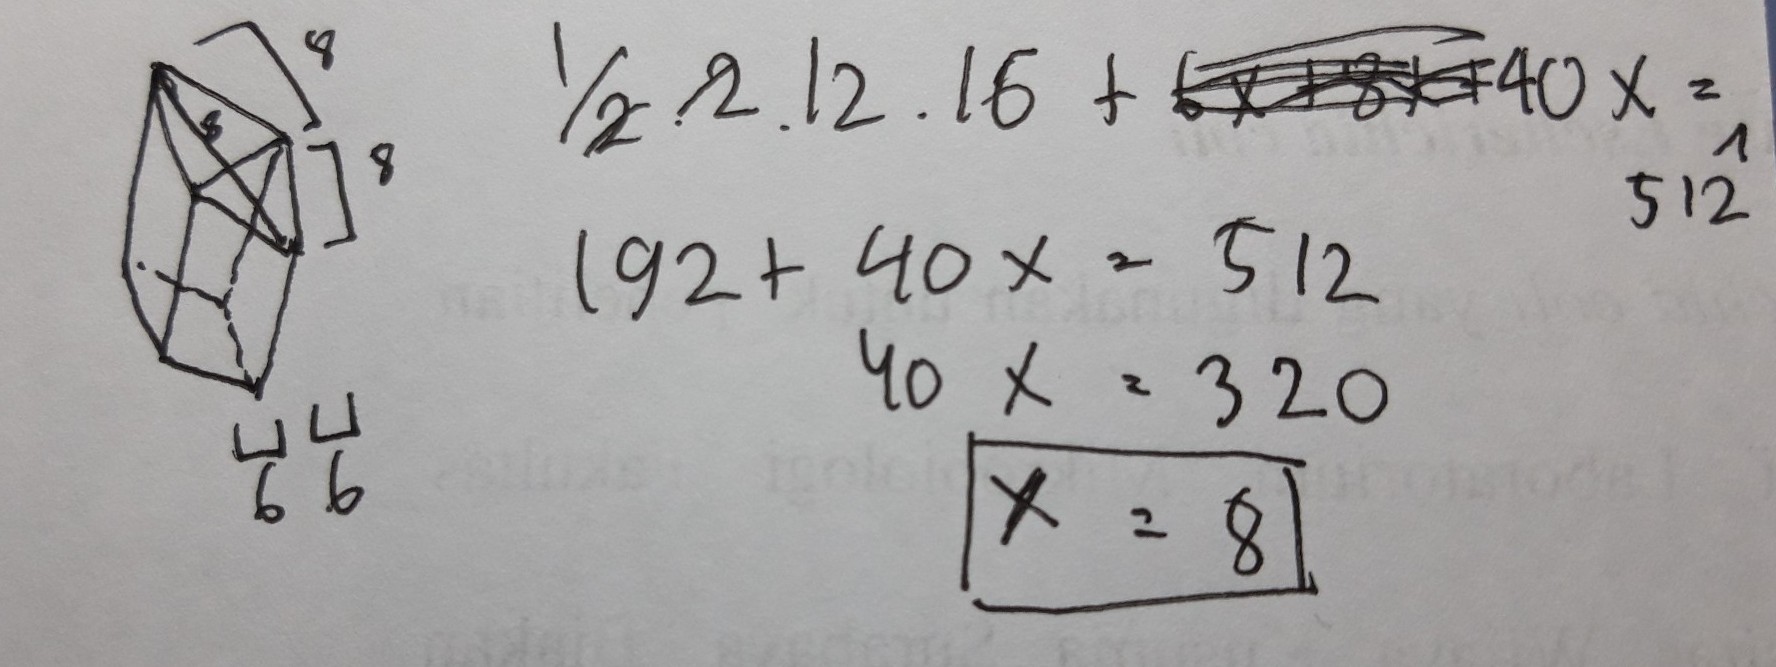 8
8
8
6 6
1/2 . 2 . 12 . 16 + 40 x =
512
192 + 40 x = 512
40 x = 320
x = 8